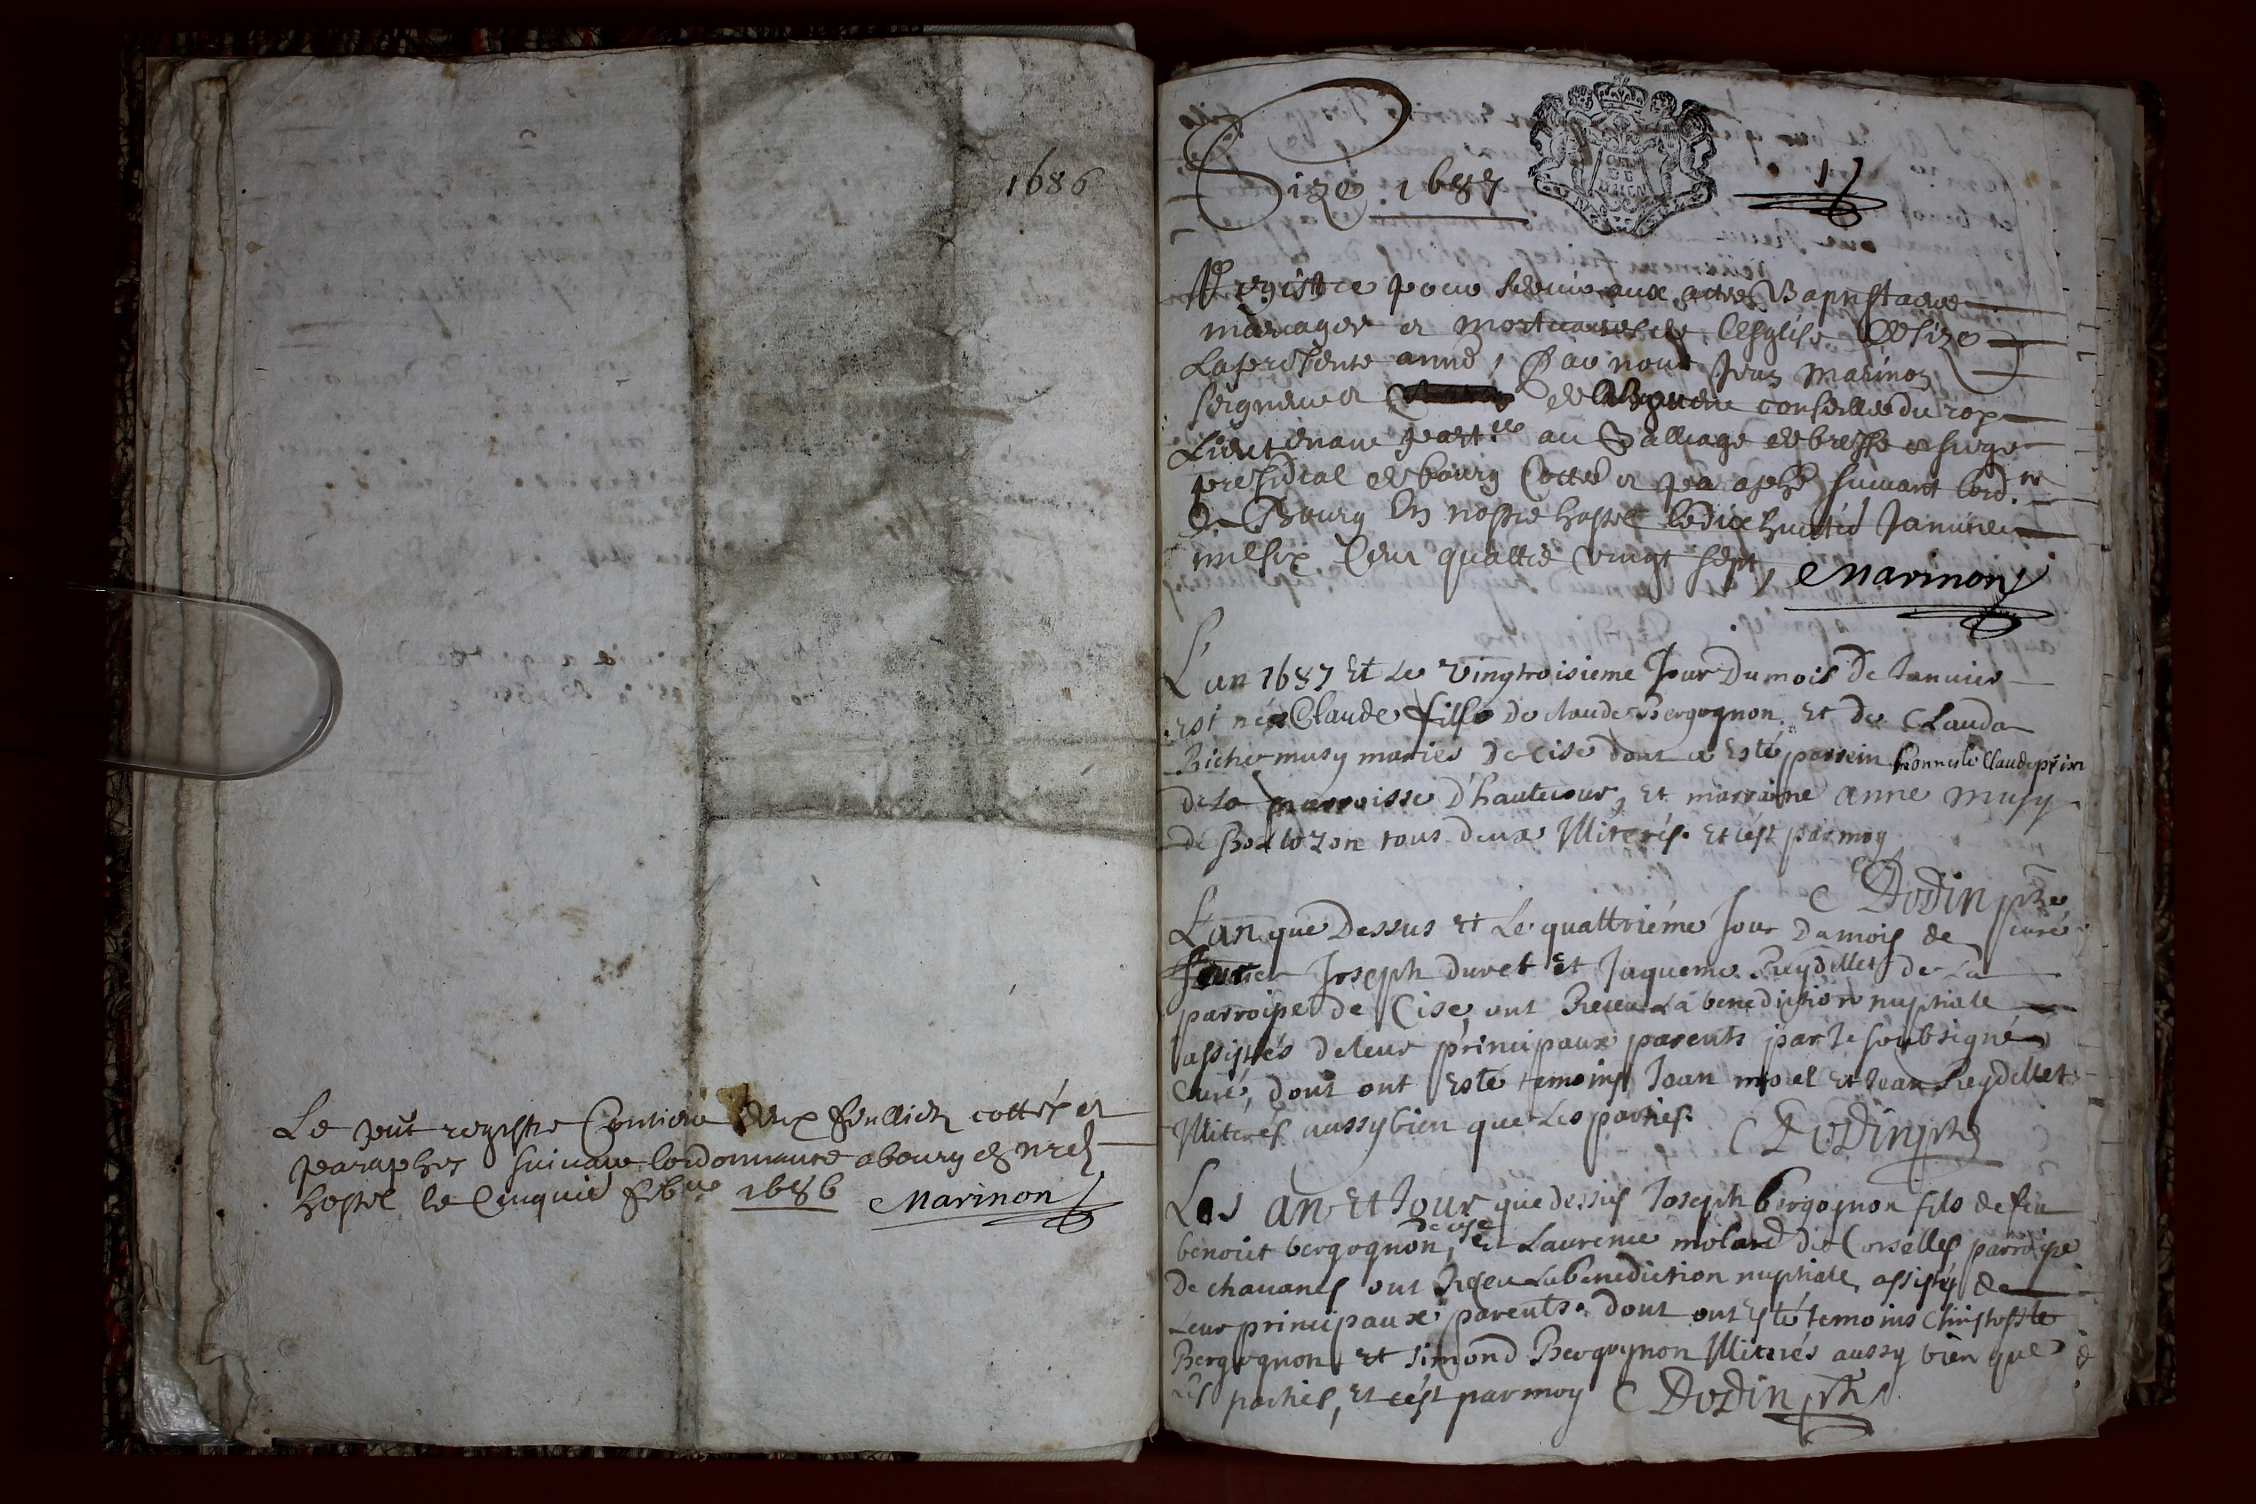 1686
Le pnt registre Contient deux feulliets cottés et
paraphés suivant lordonnance a bourg en nre
hostel le Cinquie febvr 1686 Marinon
Size 1687
1
Registre pour servir aux actes Baptistaires
mariages et mortuaires de lesglise de Size
La presente anné, Par nous Jean Marinon
seigneur et de conseiller du roy
Lieutenant part.er au Balliage de bresse et siege
presidial de bourg Cotté et paraphé suivant lord.ce
A Bourg En nostre hostel le dix huictie Janvier
mil six Cent quattre vingt sept, Marinon
L'an 1687 Et Le vingtroisieme Jour Du mois De Janvier
est née Claude fille De claude Bergognon Et De Clauda
Richermusy mariés De Cise dont a Esté parrein honneste Claude prin
De La parroisse D'hautecour, Et marraine anne musy
de Bolozon tous deux Illiterés. Et c'est par moy
Dodin ptre
curé
L'an que Dessus Et Le quattriéme Jour Du mois de
fevrier Joseph duret Et Jaqueme Reydellet de La
parroisse De Cise, ont Receu La benediction nuptiale
assistés de leur principaux parents par Je soubsigné
Curé, dont ont Esté temoins Jean morel Et Jean Reydellet
Illiterés aussy bien que Les parties. Dodin ptre
Les an Et Jour que dessus Joseph bergognon fils de feu
de cise
benoict bergognon, Et Laurence molard de Corselles parroisse
De chavanes ont Receu La benediction nuptiale, assistés de
Leur principaux parents. dont ont Esté temoins Christophle
Bergognon Et simond Bergognon Illiterés aussy bien que
Les parties, Et c'est par moy Dodin ptre